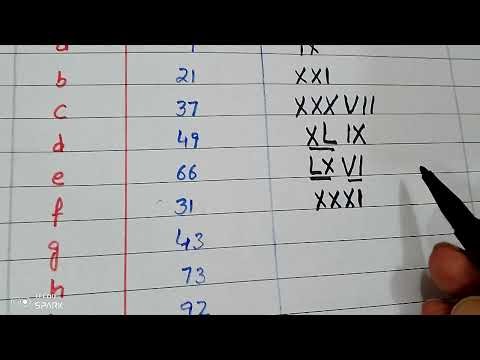 a IX
b 21 XXI
c 37 XXXVII
d 49 XL IX
e 66 LX VI
f 31 XXXI
g 43
h 73
92
SPARK